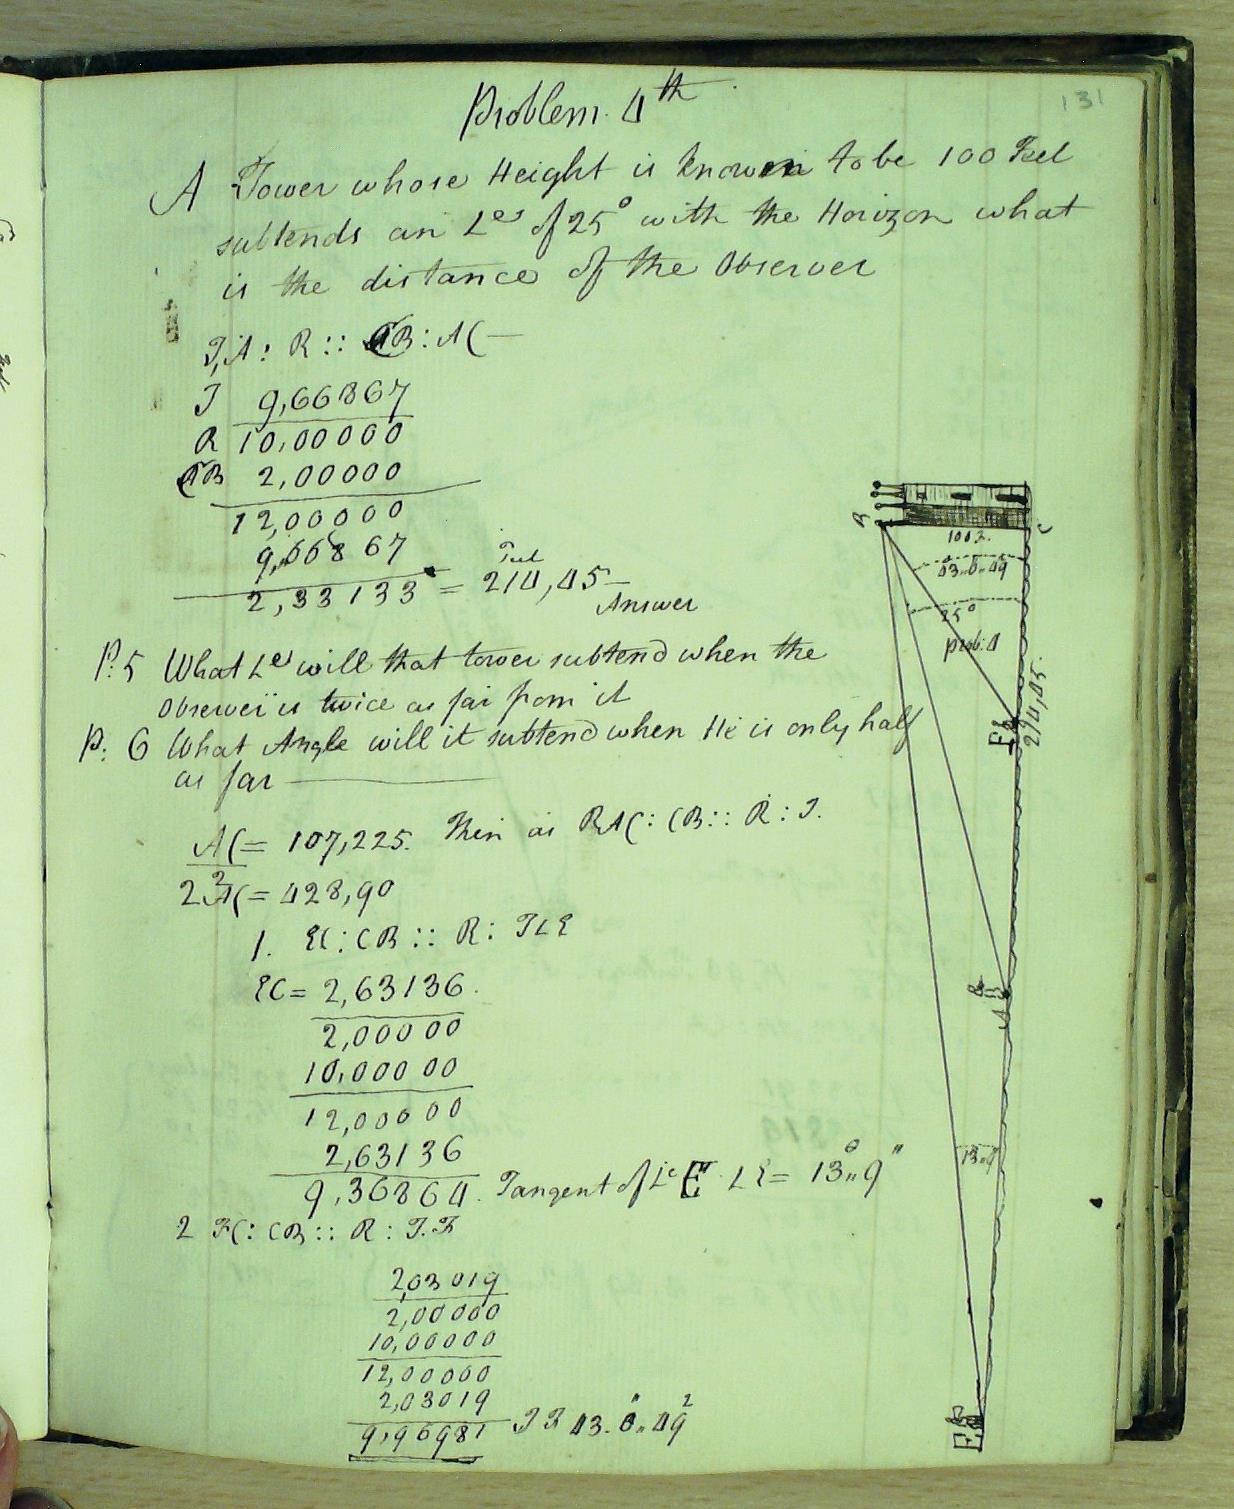 131
Problem. 4th
A Tower whose Height is known to be 100 Feet
subtends an Les of 25° with the Horizon what
is the distance of the Observer
T,A : R :: CB : AC
T 9,66867
R 10,00000
CB 2,00000
12,00000
9,66867
2,33133 = 214,45 Feet
Answer
P. 5 What Le will that tower subtend when the
Observer is twice as far from it
P: 6 What Angle will it subtend when He is only half
as far
AC = 107,225. Then as BAC : CB :: R : T.
2
2AC = 428,90
1. EC : CB :: R : TLE
EC = 2,63136.
2,00000
10,00000
12,00000
2,63136
9,36864. Tangent of Le E. LE = 13°,,9"
2 FC : CB :: R : T.F
2,03019
2,00000
10,00000
12,00000
2,03019
9,96981 TF 43.0,,49
B
C
100
43,,0,,49
25°
prob: 4
214,45.
F
A
13,,9
E